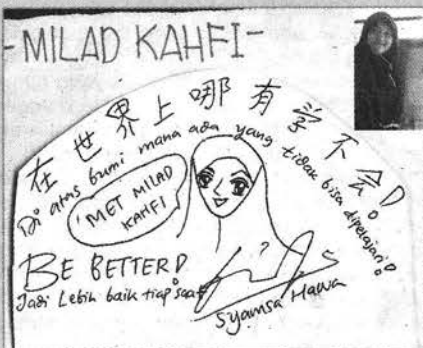 - MILAD KAHFI -
在世界上哪有学不会!
Di atas bumi mana ada yang tidak bisa dipelajari!
MET MILAD
KAHFI
BE BETTER!
Jadi Lebih baik tiap saat
Syamsa Hawa